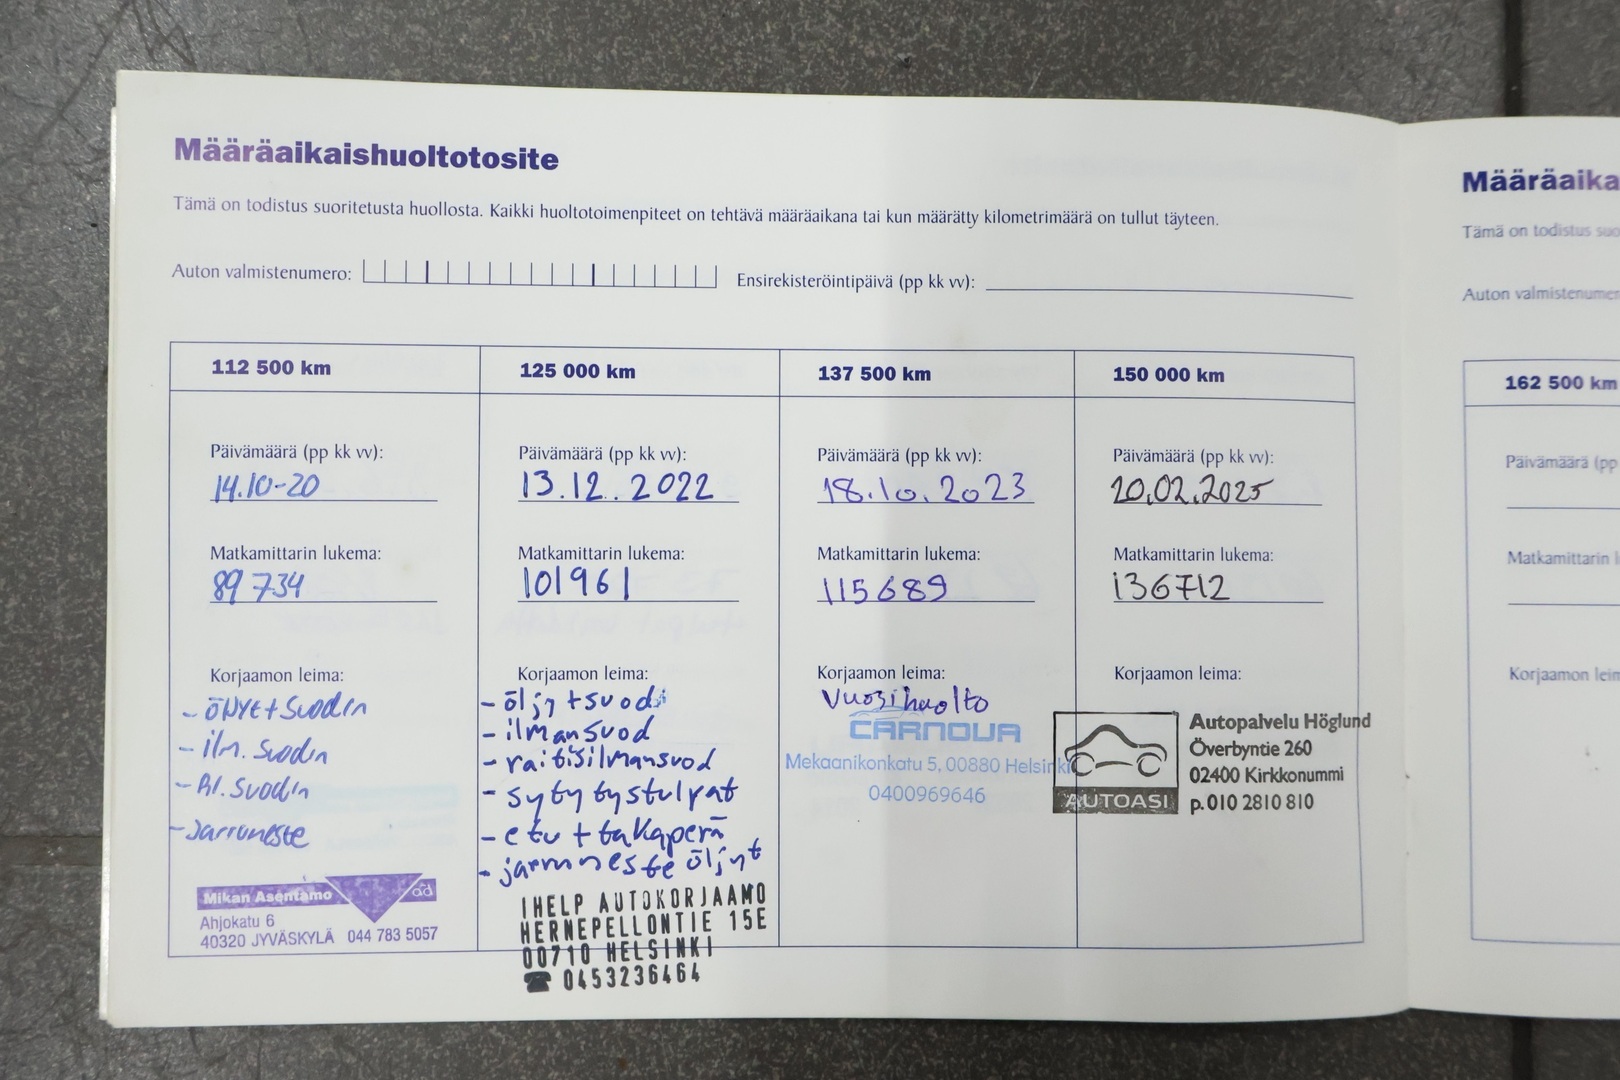 Määräaikaishuoltotosite
Tämä on todistus suoritetusta huollosta. Kaikki huoltotoimenpiteet on tehtävä määräaikana tai kun määrätty kilometrimäärä on tullut täyteen.
Auton valmistenumero:
Ensirekisteröintipäivä (pp kk vv):
112 500 km
Päivämäärä (pp kk vv):
14.10-20
Matkamittarin lukema:
89 734
Korjaamon leima:
- ilm. suodin
- jarruneste
Mikan Asentamo
ad
Ahjokatu 6
40320 JYVÄSKYLÄ 044 783 5057
125 000 km
Päivämäärä (pp kk vv):
13.12.2022
Matkamittarin lukema:
101961
Korjaamon leima:
- öljy + suodi
- ilmansuod
- raitisilmansuod
- sytytystulpat
- etu + takaperä
- jarruneste öljyt
IHELP AUTOKORJAAMO
HERNEPELLONTIE 15E
00710 HELSINKI
☎ 0453236464
137 500 km
Päivämäärä (pp kk vv):
18.10.2023
Matkamittarin lukema:
115689
Korjaamon leima:
Vuosihuolto
CARNOVA
Mekaanikonkatu 5, 00880 Helsinki
0400969646
150 000 km
Päivämäärä (pp kk vv):
20.02.2025
Matkamittarin lukema:
136712
Korjaamon leima:
AUTOASI
Autopalvelu Höglund
Överbyntie 260
02400 Kirkkonummi
p.010 2810 810
Määräaika
Tämä on todistus suo
Auton valmistenumer
162 500 km
Päivämäärä (pp
Matkamittarin l
Korjaamon leim